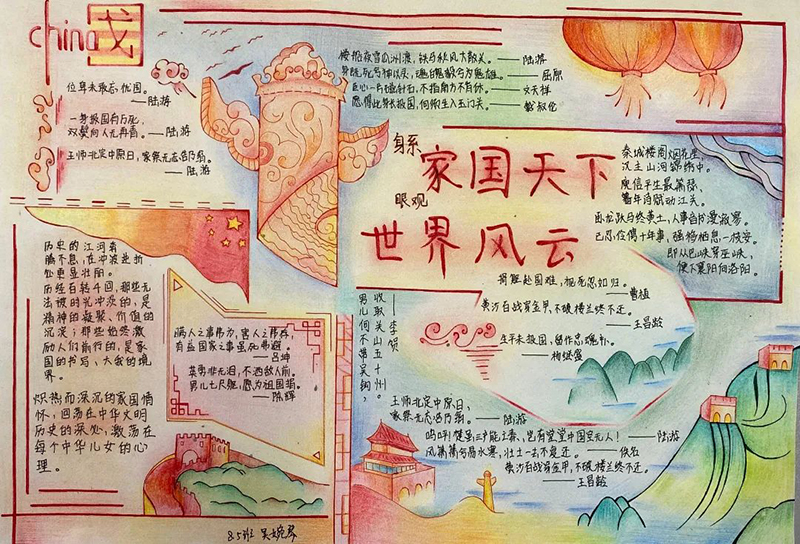 china
位卑未敢忘忧国。
——陆游
一身报国有万死，
双鬓向人无再青。——陆游
王师北定中原日，家祭无忘告乃翁。
——陆游
楼船夜雪瓜洲渡，铁马秋风大散关。——陆游
身既死兮神以灵，魂魄毅兮为鬼雄。——屈原
臣心一片磁针石，不指南方不肯休。——文天祥
愿得此身长报国，何须生入玉门关。——戴叔伦
身系
家国天下
眼观
世界风云
秦城楼阁烟花里，
汉主山河锦绣中。
庾信平生最萧瑟，
暮年诗赋动江关。
卧龙跃马终黄土，人事音书漫寂寥。
已忍伶俜十年事，强移栖息一枝安。
即从巴峡穿巫峡，
便下襄阳向洛阳。
历史的江河奔
腾不息，在冲波逆折
处更显壮阔。
历经百转千回，那些无
法被时光冲淡的，是
精神的凝聚、价值的
沉淀；那些始终激
励人们前行的，是家
国的书写、大我的境
界。
炽热而深沉的家国情
怀，回荡在中华文明
历史的深处，激荡在
每个中华儿女的心
理。
利人之事弗为，害人之弗存，
有益国家之事虽死弗避。
——吕坤
英雄非无泪，不洒敌人前。
男儿七尺躯，愿为祖国捐。
——陈辉
男儿何不带吴钩，
收取关山五十州。
——李贺
捐躯赴国难，视死忽如归。
——曹植
黄沙百战穿金甲，不破楼兰终不还。
——王昌龄
生平未报国，留作忠魂补。
——杨继盛
王师北定中原日，
家祭无忘告乃翁。——陆游
呜呼！楚虽三户能亡秦，岂有堂堂中国空无人！——陆游
风萧萧兮易水寒，壮士一去不复还。——佚名
黄沙百战穿金甲，不破楼兰终不还。
——王昌龄
85班 吴婉琴